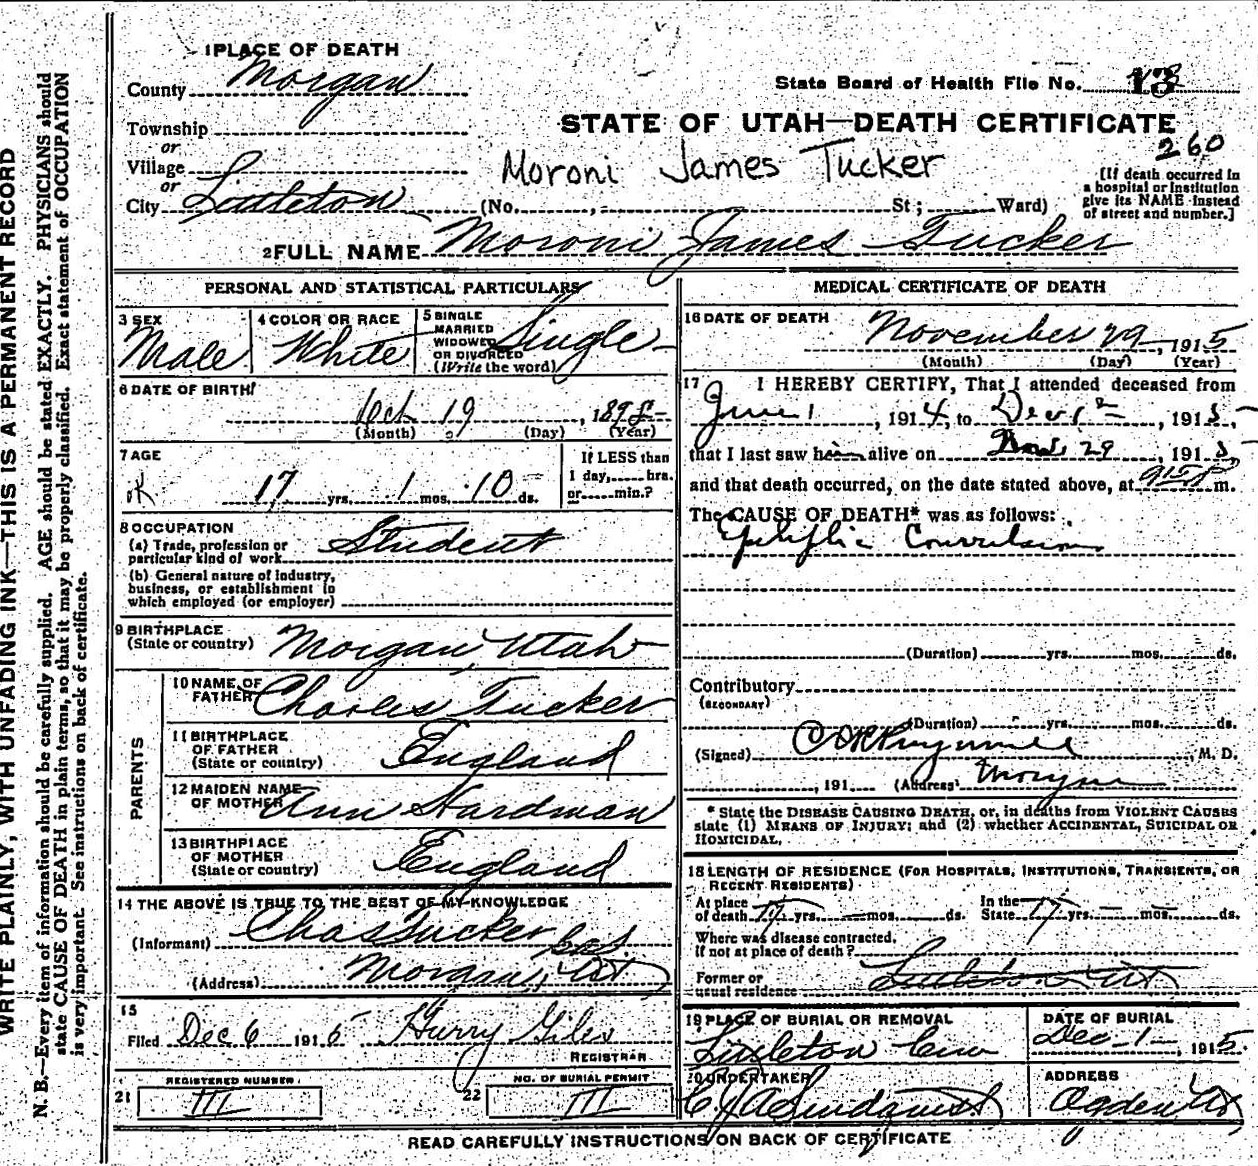 WRITE PLAINLY, WITH UNFADING INK—THIS IS A PERMANENT RECORD
N. B.—Every item of information should be carefully supplied. AGE should be stated EXACTLY. PHYSICIANS should
state CAUSE OF DEATH in plain terms, so that it may be properly classified. Exact statement of OCCUPATION
is very important. See instructions on back of certificate.
1 PLACE OF DEATH
County Morgan
Township
or
Village
or
City Littleton
State Board of Health File No. 13
STATE OF UTAH—DEATH CERTIFICATE
260
Moroni James Tucker
(No. , St ; Ward)
[If death occurred in
a hospital or institution
give its NAME instead
of street and number.]
2 FULL NAME Moroni James Tucker
PERSONAL AND STATISTICAL PARTICULARS
3 SEX
Male
4 COLOR OR RACE
White
5 SINGLE
MARRIED
WIDOWED
OR DIVORCED
(Write the word)
Single
6 DATE OF BIRTH
Oct 19, 1898
(Month) (Day) (Year)
7 AGE
OK 17 yrs. 1 mos. 10 ds.
If LESS than
1 day, hrs.
or min.?
8 OCCUPATION
(a) Trade, profession or
particular kind of work Student
(b) General nature of industry,
business, or establishment in
which employed (or employer)
9 BIRTHPLACE
(State or country) Morgan, Utah
PARENTS
10 NAME OF
FATHER Charles Tucker
11 BIRTHPLACE
OF FATHER
(State or country) England
12 MAIDEN NAME
OF MOTHER Ann Hardman
13 BIRTHPLACE
OF MOTHER
(State or country) England
14 THE ABOVE IS TRUE TO THE BEST OF MY KNOWLEDGE
(Informant) Chas Tucker
(Address) Morgan, Ut
15
Filed Dec 6 1915 Harry Giles
REGISTRAR
21 REGISTERED NUMBER
III
22 NO. OF BURIAL PERMIT
III
MEDICAL CERTIFICATE OF DEATH
16 DATE OF DEATH
November 29, 1915
(Month) (Day) (Year)
17 I HEREBY CERTIFY, That I attended deceased from
June 1, 1914, to Dec 1, 1915,
that I last saw him alive on Nov. 29, 1915,
and that death occurred, on the date stated above, at m.
The CAUSE OF DEATH* was as follows:
Epileptic Convulsions
(Duration) yrs. mos. ds.
Contributory
(SECONDARY)
(Duration) yrs. mos. ds.
(Signed) , M. D.
, 191 (Address) Morgan
* State the DISEASE CAUSING DEATH, or, in deaths from VIOLENT CAUSES
state (1) MEANS OF INJURY; and (2) whether ACCIDENTAL, SUICIDAL OR
HOMICIDAL.
18 LENGTH OF RESIDENCE (FOR HOSPITALS, INSTITUTIONS, TRANSIENTS, OR
RECENT RESIDENTS)
At place
of death 17 yrs. mos. ds.
In the
State 17 yrs. mos. ds.
Where was disease contracted,
if not at place of death?
Former or
usual residence Littleton Ut
19 PLACE OF BURIAL OR REMOVAL
Littleton Cem
DATE OF BURIAL
Dec-1-, 1915.
20 UNDERTAKER
ADDRESS
Ogden Ut
READ CAREFULLY INSTRUCTIONS ON BACK OF CERTIFICATE